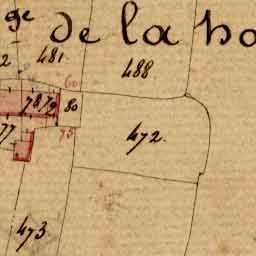 ge de la ho
2 481 488
60
78 79 80
77 75 472.
473